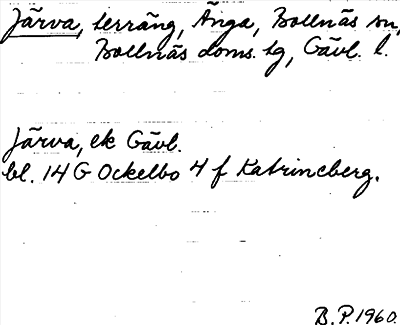 Järva, terräng, Änga, Bollnäs sn,
Bollnäs doms. tg, Gävl. l.
Järva, ek Gävl.
bl. 14 G Ockelbo 4 f Katrineberg.
B.P. 1960.